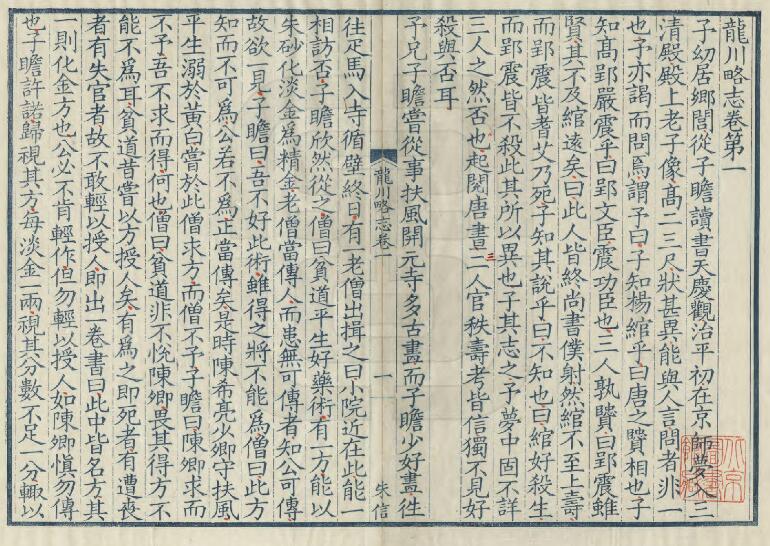 龍川略志卷第一
予幼居鄉閭從子瞻讀書天慶觀治平初在京師夢入三
清殿殿上老子像高二三尺狀甚異能與人言問者非一
也予亦謁而問焉謂予曰子知楊綰乎曰唐之賢相也子
知高郢嚴震乎曰郢文臣震功臣也三人孰賢曰郢震雖
賢其不及綰遠矣曰此人皆終尚書僕射然綰不至上壽
而郢震皆耆艾乃死子知其說乎曰不知也曰綰好殺生
而郢震皆不殺此其所以異也子其志之予夢中固不詳
三人之然否也起閱唐書二人官秩壽考皆信獨不見好
殺與否耳
予兄子瞻嘗從事扶風開元寺多古畫而子瞻少好畫往
龍川略志卷一
一
朱信
往疋馬入寺循壁終日有一老僧出揖之曰小院近在此能一
相訪否子瞻欣然從之僧曰貧道平生好藥術有一方能以
朱砂化淡金為精金老僧當傳人而患無可傳者知公可傳
故欲一見子瞻曰吾不好此術雖得之將不能為僧曰此方
知而不可為公若不為正當傳矣是時陳希亮少卿守扶風
平生溺於黃白嘗於此僧求方而僧不予子瞻曰陳卿求而
不予吾不求而得何也僧曰貧道非不悅陳卿畏其得方不
能不為耳貧道昔嘗以方授人矣有為之即死者有遭喪
者有失官者故不敢輕以授人即出一卷書曰此中皆名方其
一則化金方也公必不肯輕作但勿輕以授人如陳卿慎勿傳
也子瞻許諾歸視其方每淡金一兩視其分數不足一分輙以